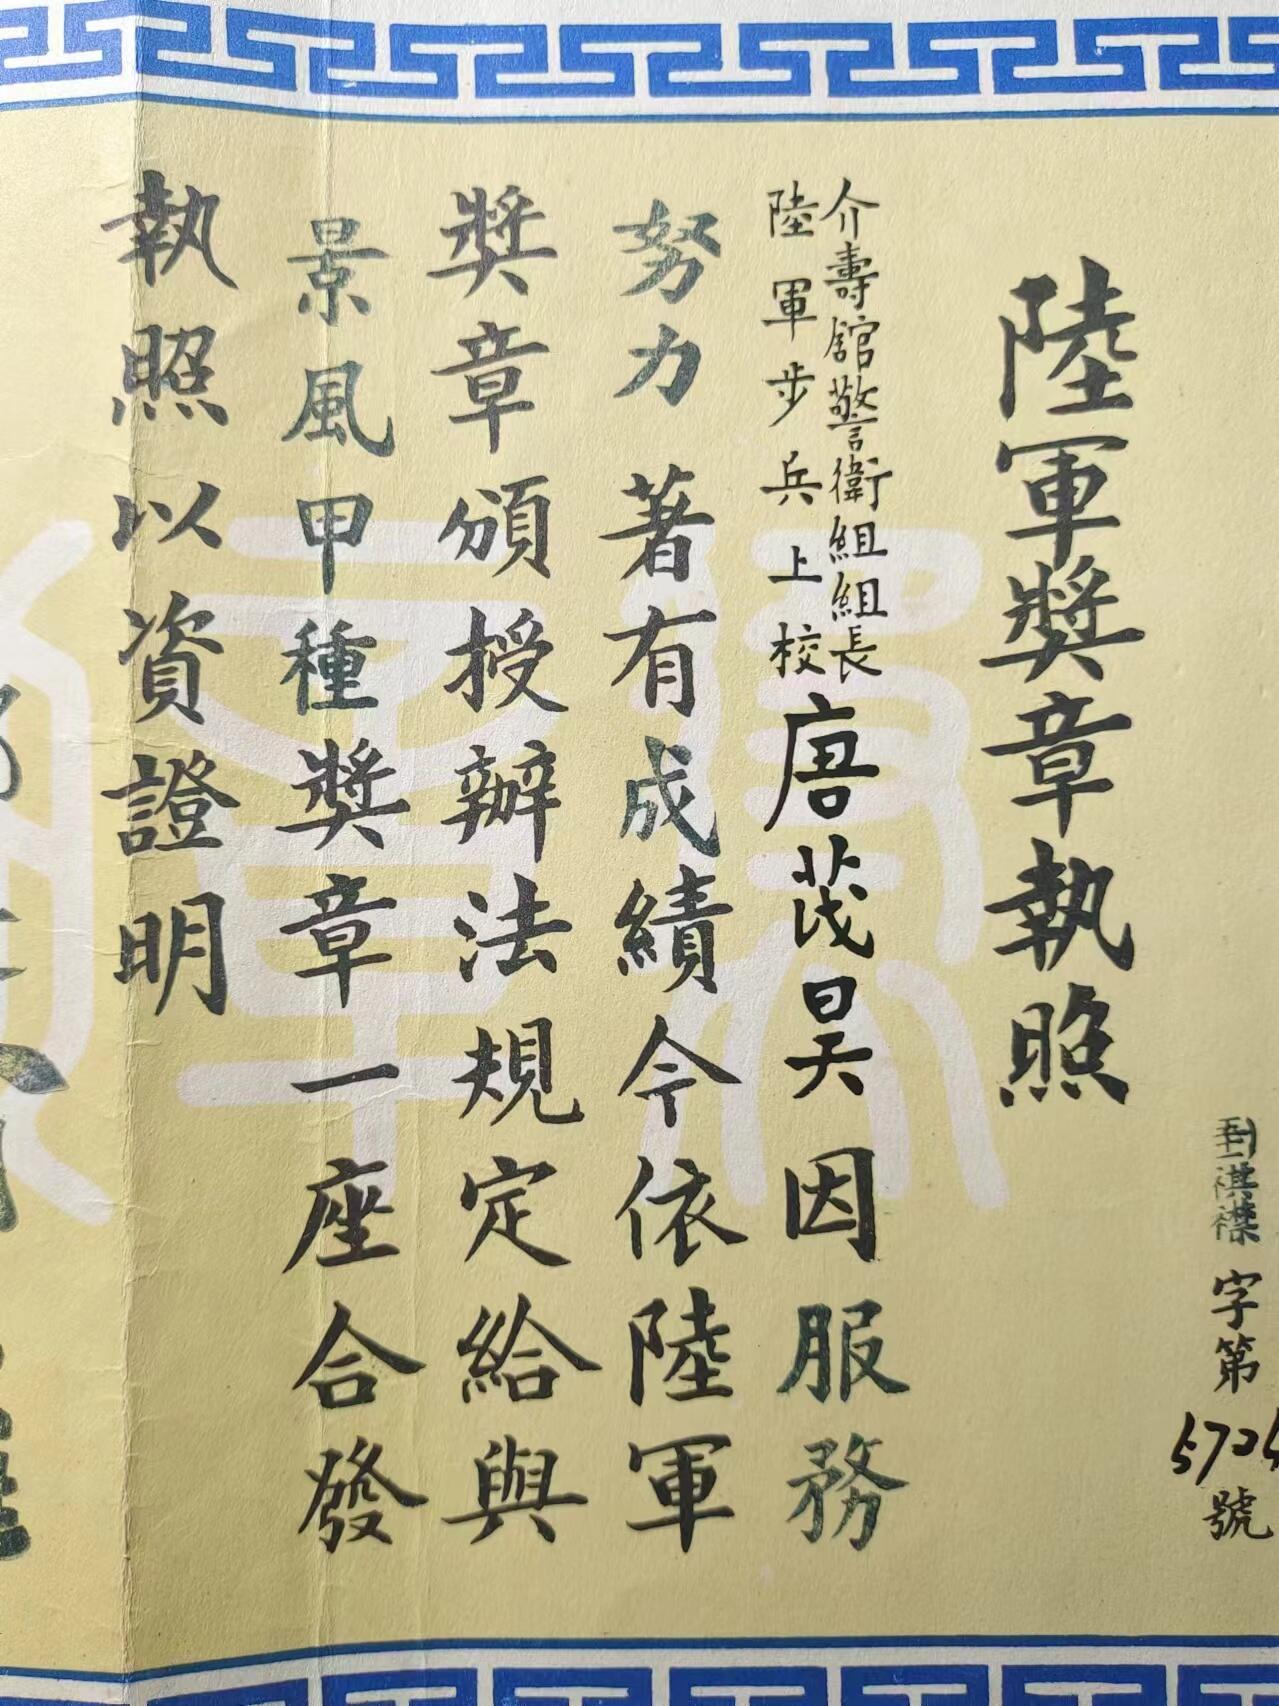 字第
號
陸軍獎章執照
介壽館警衛組組長
陸軍步兵上校
唐茂昊因服務
努力著有成績今依陸軍
獎章頒授辦法規定給與
景風甲種獎章一座合發
執照以資證明